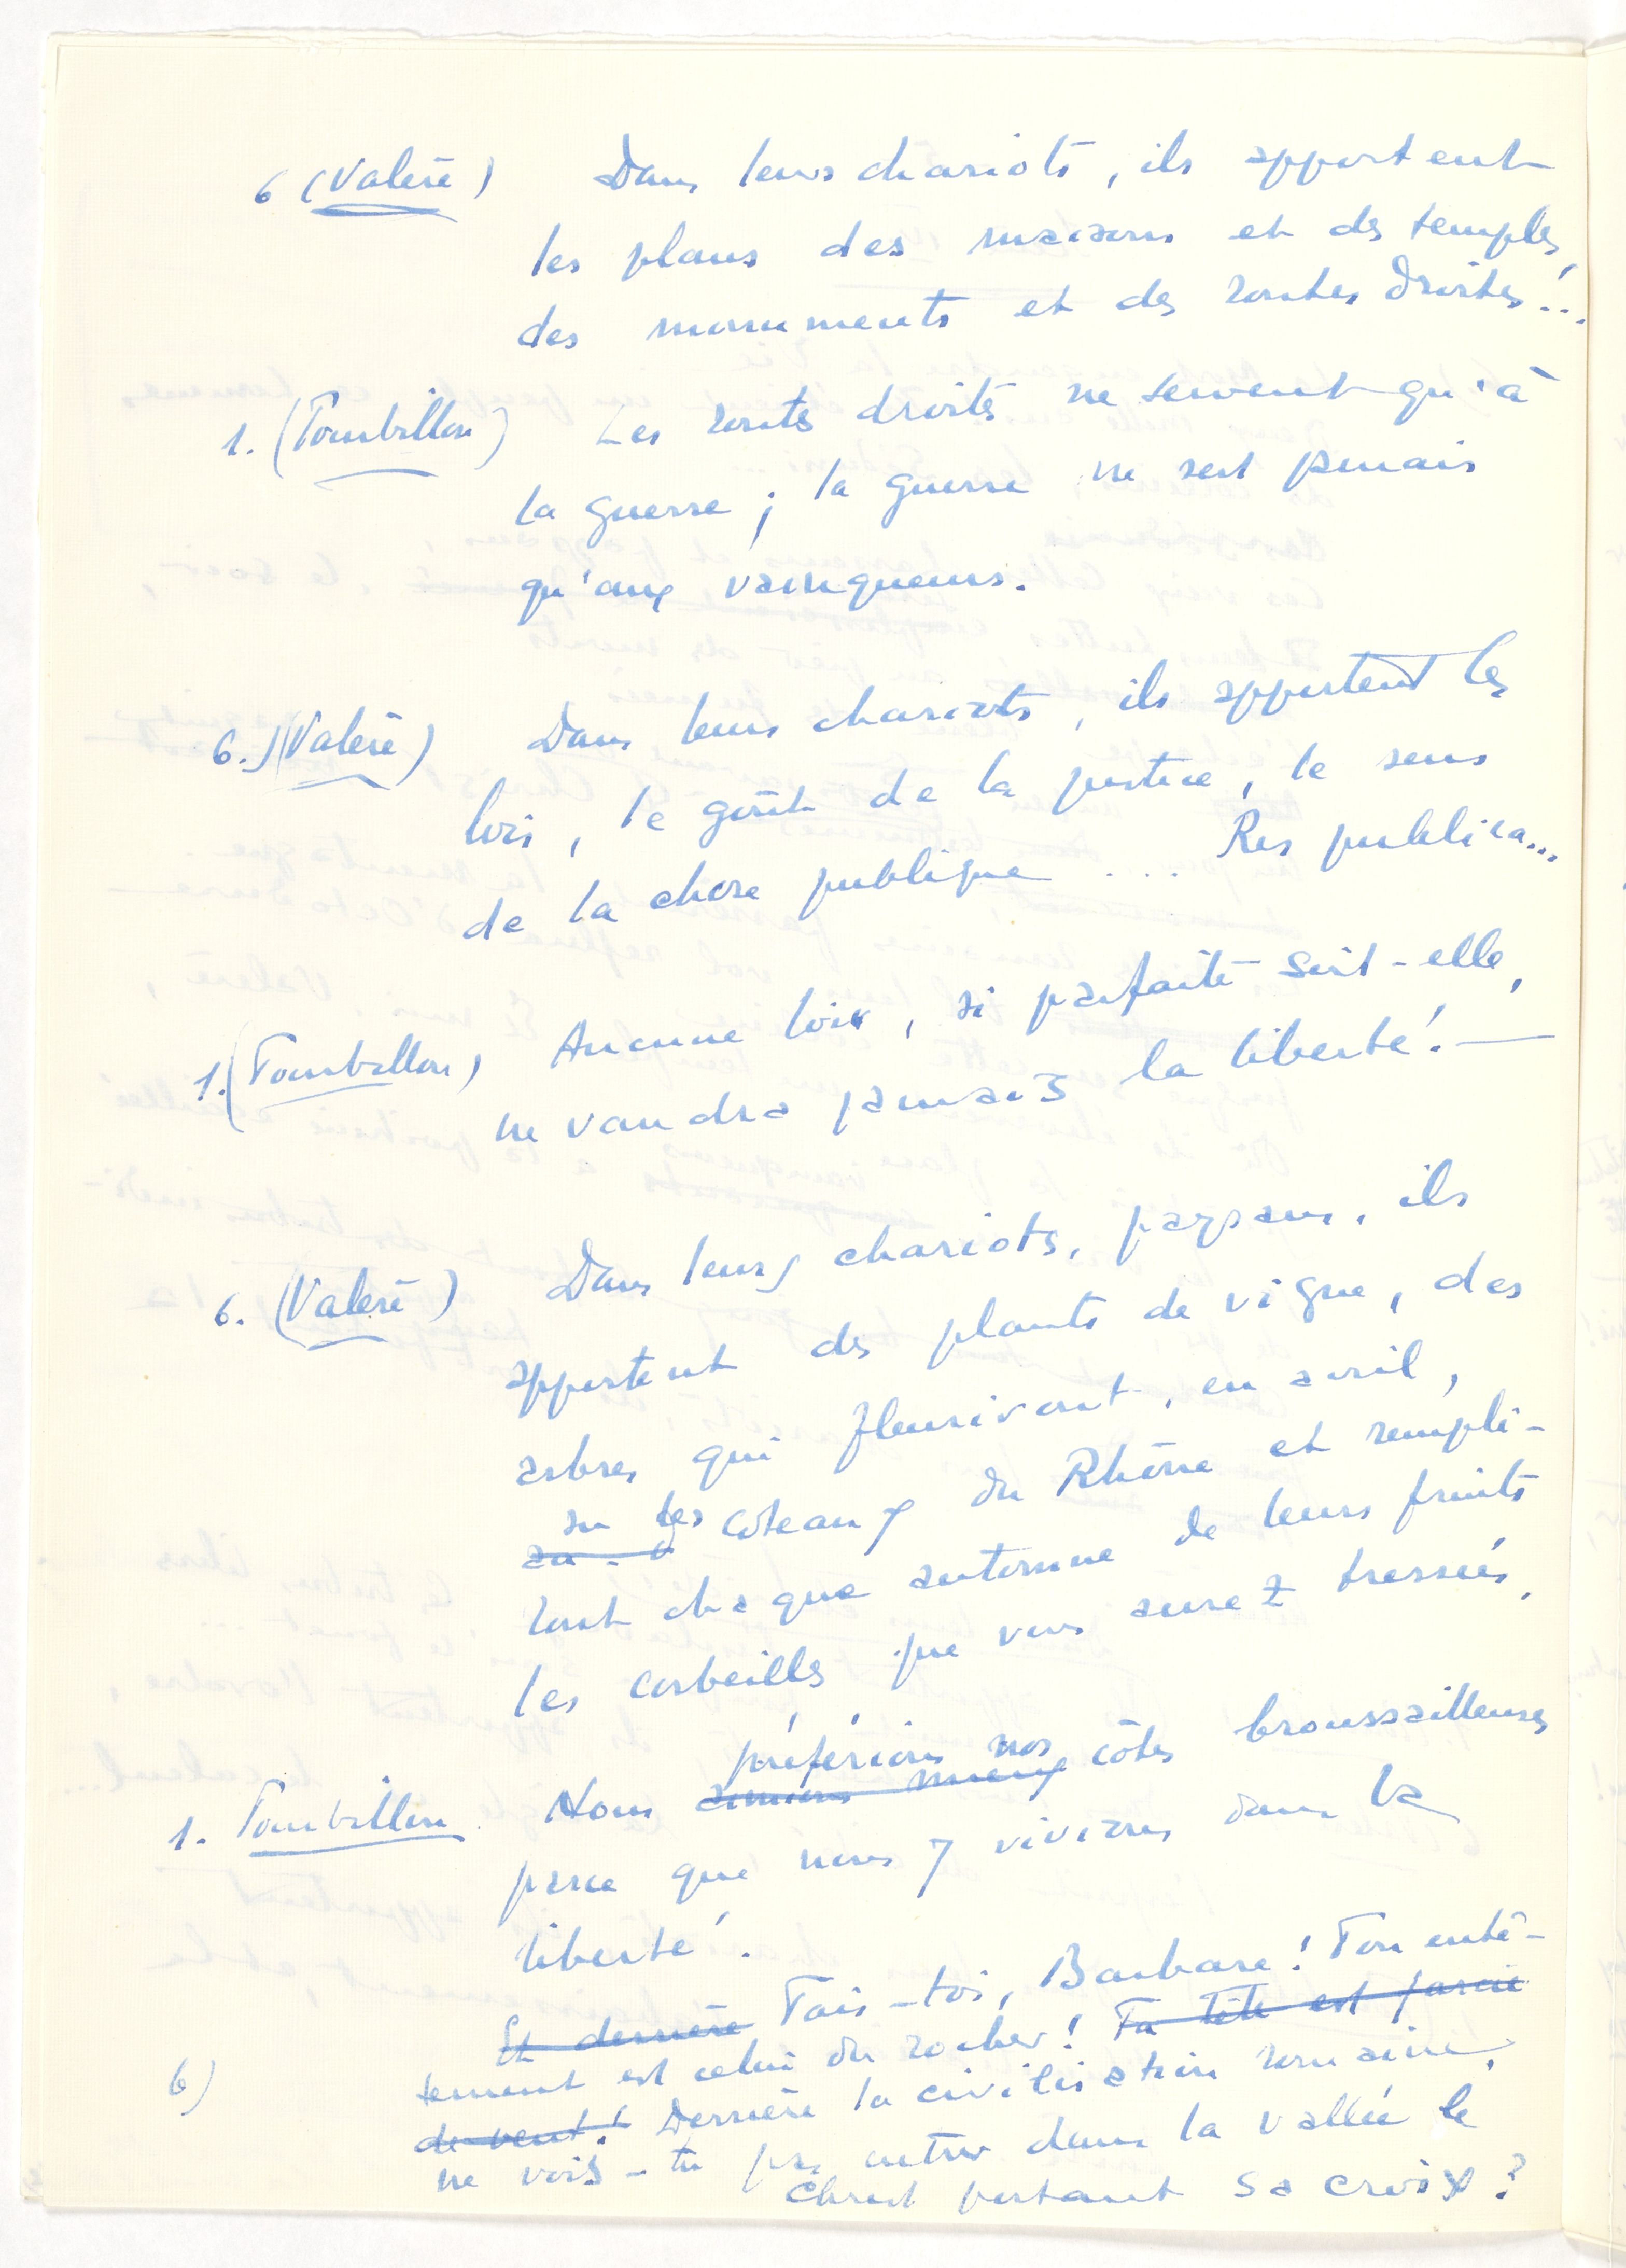 6 (Valère) Dans leurs chariots, ils apportent
les plans des maisons et des temples,
des monuments et des routes droites!...
1. (Tourbillon) Les routes droites ne servent qu'à
la guerre ; la guerre ne sert jamais
qu'aux vainqueurs.
6.) (Valère) Dans leurs chariots, ils apportent les
lois, le goût de la justice, le sens
de la chose publique ... Res publica...
1. (Tourbillon) Aucune loix, si parfaite soit-elle,
ne vaudra jamais la liberté! —
6. (Valère) Dans leurs chariots, paysans, ils
apportent des plants de vigne, des
arbres qui fleuriront, en avril,
sur les coteaux du Rhône et rempli-
ront chaque automne de leurs fruits
les corbeilles que vous aurez tressées.
préférions nos
1. Tourbillon. Nous aimions mieux côtes broussailleuses
parce que nous y vivions dans la
liberté.
Et derrière Tais-toi, Barbare! Ton entê-
6) tement est celui du rocher! Ta tête est farcie
de vent! Derrière la civilisation romaine,
ne vois-tu pas entrer dans la vallée le
Christ portant sa croix?